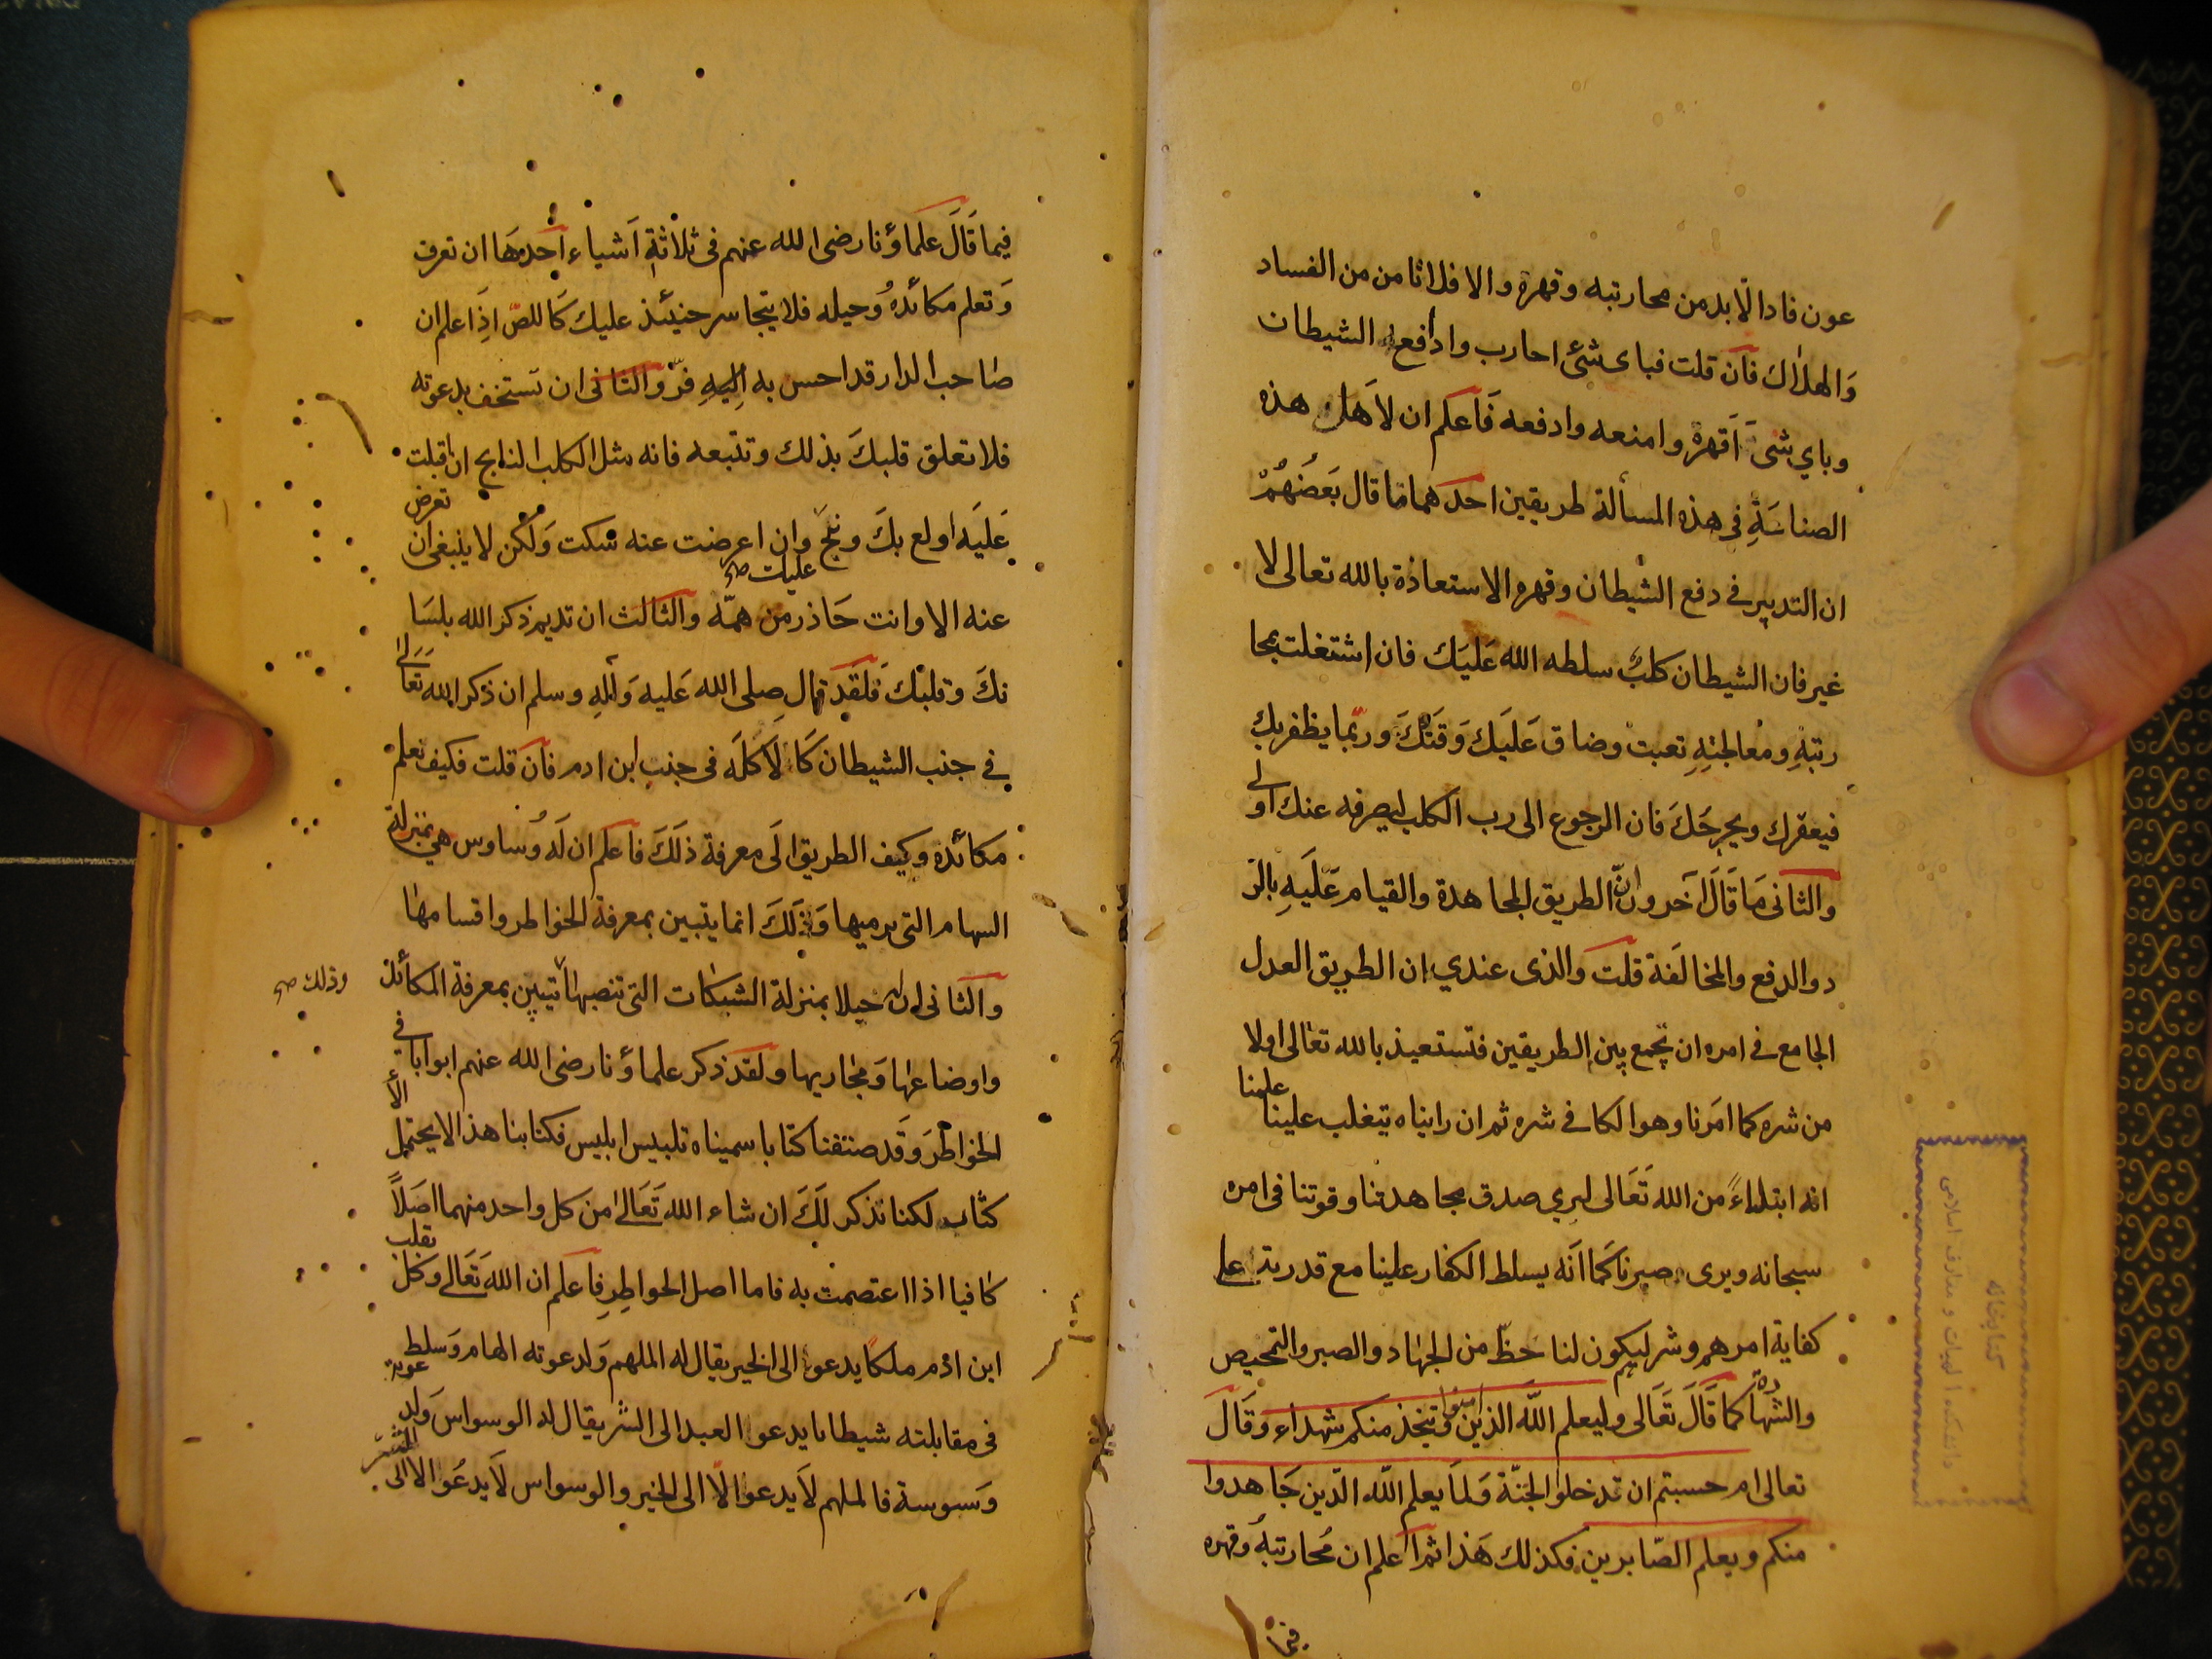 عون فاذا لا بد من محاربته وقهره والا فلا تامن من الفساد
وَالهلاك فان قلت فباى شئ احارب وادافع الشيطان
وباي شئ اقهره وامنعه وادفعه فَاعلم ان لاَهل هذه
الصناسَةِ في هذه المسألة طريقين احدهما ما قال بَعضُهُمْ
ان التدبير في دفع الشيطان وقهره الاستعاذة بالله تعالى لا
غير فان الشيطان كلبٌ سلطه الله عَليَك فان اشتغلت بمحا
ربتهِ ومعالجتِهِ تعبت وضاق عَليَك وَقتُكَ وربّما يظفر بك
فيعقرك ويجرحَكَ فان الرجوع الى رب الكلب ليصرفه عنك اولى
والثانى مَا قَالَ آخرون انّ الطريق المجاهدة والقيام عَلَيهِ بالر
د والدفع والمخالفة قلت والذى عندي ان الطريق العدل
الجامع في امره ان تجمع بين الطريقين فتستعيذ بالله تعالى اولا
من شره كما امَرنا وهو الكافى شره ثم ان رايناه يتغلب علينا
علمنا
انه ابتلاءً من الله تَعَالى ليري صدق مجاهدتنا وقوتنا فى امره
سبحانه ويرى صبرنا كَما انَه يسلط الكفار علينا مع قدرته على
كفاية امرهم وشرهم ليكون لنا حَظّ من الجهَاد والصبر والتمحيص
والشهادة كما قَالَ تَعَالى وليعلم اللّه الذين امنوا ويتخذ منكم شهداء وقَال
تعالى ام حسبتم ان تدخلوا الجنّة وَلماَ يعلم اللّه الذّين جَاهدوا
منكم ويعلم الصّابرين فكذلك هَذا ثم اعلم ان مُحاربتهُ وقهره
فيما
فيما قَالَ علماؤنا رضى الله عنهم فى ثلاثةِ اَشياء احدهَا ان تعرف
وَتعلم مكائدهُ وحيله فلا يتجاسر حنيئذ عليك كَاللصّ اذِا علم ان
صاحب الدار قد احس به اليهِ فرّ والثانى ان تستخف بدعوته
فلا تعلق قلبكَ بذلك وتتبعه فانه مثل الكلب النابح ان اقبلت
عَليَه اولع بكَ ونلجّ وان اعرضت عنه سكت وَلكن لا ينبغى ان
تعرض
عنه الا وانت حَاذر من همّه والثالث ان تديم ذكر الله بلسَا
عليك صح
نكَ وقلبكَ فَلقَد قال صلى الله عَليه وَآلهِ وسلم ان ذكر الله تعَالى
في جنب الشيطان كَالاَكلَه فى جنب ابن ادم فان قلت فكيف تعلم
مكائده وكيف الطريق الَى معرفة ذلَكَ فاعلم ان لَه وُساوس هي بمنزلة
السهام التى يرميها وَذلَكَ انما يتبين بمعرفة الخواطر واقسامها
والثانى ان له حيلا بمنزلة الشبكات التى تنصبها تتبين بمعرفة المكائد
وذلك صح
واوضاعها وَمجاريها ولقد ذكر علماؤنا رضى الله عنهم ابوابا في
الخواطر وَقد صنتفنا كتابا سميناه تلبيس ابليس فكتابنا هذا لا يحتمل
الأ
كثاب لكنا نذكر لَكَ ان شاء الله تَعَالى من كل واحد منهما اصَلاً
كافيا اذا اعتصمت به فاما اصل الخواطِرِ فاعلم ان الله تَعَالى وكل
بقلب
ابن ادم ملكًا يدعو الى الخير يقال له الملهم وَلدعوته الهام وَسلط
فى مقابلته شيطانا يدعو العبد الى الشر يقال له الوسواس وَلد
عوته
وَسوسة فالملهم لاَ يدعو الاّ الى الخير والوسواس لاَ يدعُوا الا الى
الشر
كتابخانه
دانشكده الهيات و معارف اسلامى